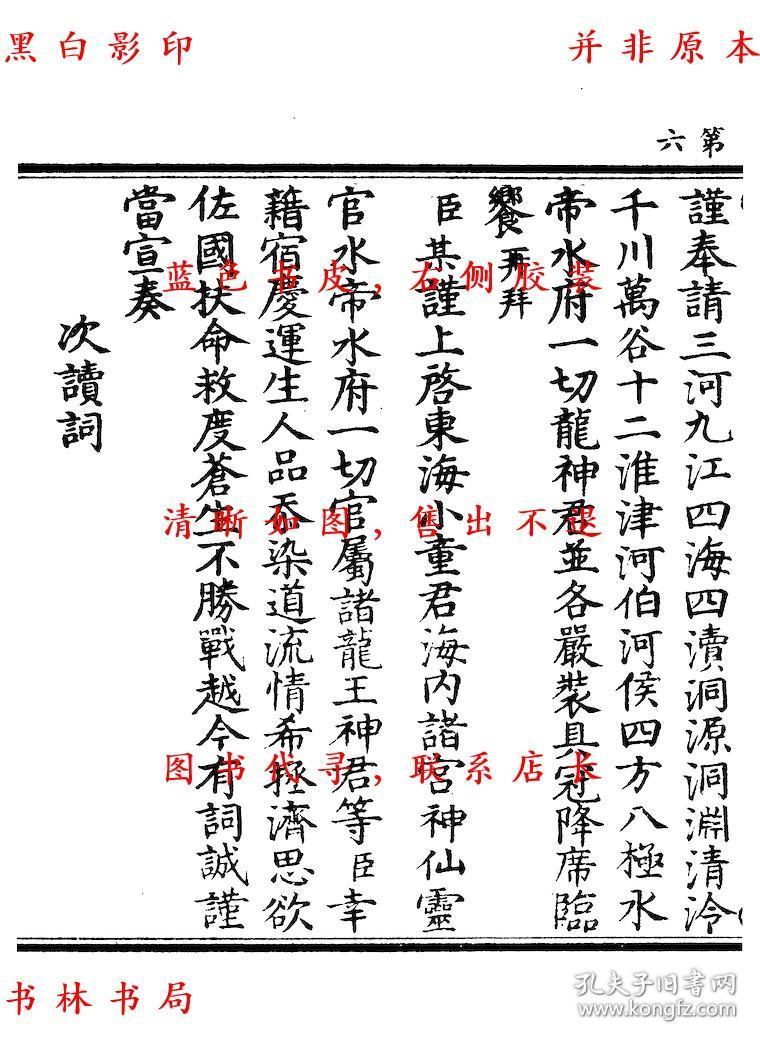 黑白影印
并非原本
第六
謹奉請三河九江四海四瀆洞源洞淵清泠
千川萬谷十二淮津河伯河侯四方八極水
帝水府一切龍神君並各嚴裝具冠降席臨
饗再拜
臣某謹上啓東海小童君海內諸宮神仙靈
官水帝水府一切官屬諸龍王神君等臣幸
藉宿慶運生人品忝染道流情希拯濟思欲
佐國扶命救度蒼生不勝戰越今有詞誠謹
當宣奏
次讀詞
蓝色书皮，右侧胶装
清晰如图，售出不退
图书代寻，联系店长
书林书局
孔夫子旧书网
www.kongfz.com